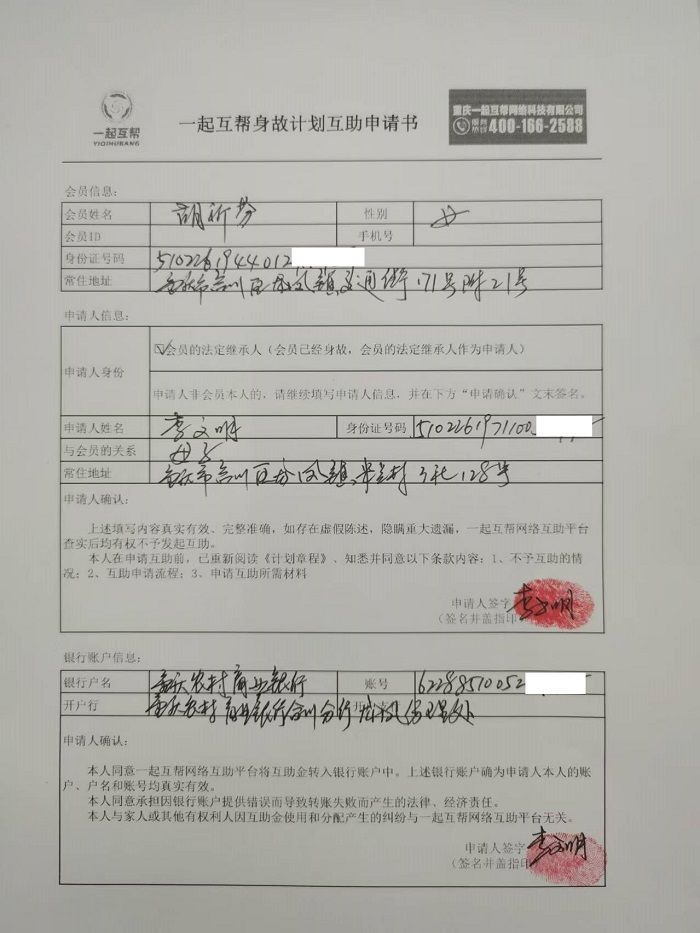 一起互帮
YIQIHUBANG
一起互帮身故计划互助申请书
重庆一起互帮网络科技有限公司
服务热线 400-166-2588
会员信息：
会员姓名 胡 芬 性别 女
会员ID 手机号
身份证号码 5102261944012
常住地址 重庆市合川区 镇交通街171号附21号
申请人信息：
申请人身份
会员的法定继承人（会员已经身故，会员的法定继承人作为申请人）
申请人非会员本人的，请继续填写申请人信息，并在下方“申请确认”文末签名。
申请人姓名 李文明 身份证号码 5102261971100
与会员的关系 母子
常住地址 重庆市合川区 镇 村3社128号
申请人确认：
上述填写内容真实有效、完整准确，如存在虚假陈述，隐瞒重大遗漏，一起互帮网络互助平台
查实后均有权不予发起互助。
本人在申请互助前，已重新阅读《计划章程》、知悉并同意以下条款内容：1、不予互助的情
况；2、互助申请流程；3、申请互助所需材料
申请人签字 李文明
（签名并盖指印
银行账户信息：
银行户名 重庆农村商业银行 账号 62288510052
开户行 重庆农村商业银行合川分行 分理处
申请人确认：
本人同意一起互帮网络互助平台将互助金转入银行账户中。上述银行账户确为申请人本人的账
户、户名和账号均真实有效。
本人同意承担因银行账户提供错误而导致转账失败而产生的法律、经济责任。
本人与家人或其他有权利人因互助金使用和分配产生的纠纷与一起互帮网络互助平台无关。
申请人签字 李文明
（签名并盖指印